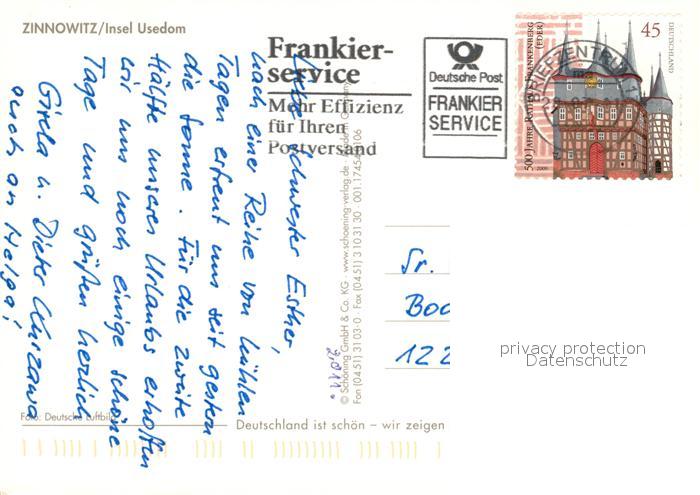 ZINNOWITZ/Insel Usedom
Liebe Schwester Esther,
nach einer Reihe von kühlen
Tagen erfreut uns seit gestern
die Sonne. Für die zweite
Hälfte unseres Urlaubs erhoffen
wir uns noch einige schöne
Tage und grüßen herzlich
Gisela u. Dieter Kurzawa
auch an Helga!
Foto: Deutsche Luftbild
Frankier-
service
Mehr Effizienz
für Ihren
Postversand
Deutsche Post
FRANKIER
SERVICE
45
DEUTSCHLAND
500 JAHRE RATHAUS FRANKENBERG
(EDER)
2009
BRIEFZENTRUM
© Schöning GmbH & Co. KG · www.schoening-verlag.de
Fon (04 51) 31 03-0 · Fax (04 51) 3 10 31 30
2011.
Sr.
122
Deutschland ist schön – wir zeigen
privacy protection
Datenschutz